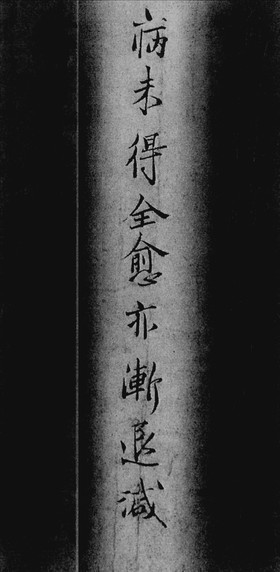 病未得全愈亦漸退減